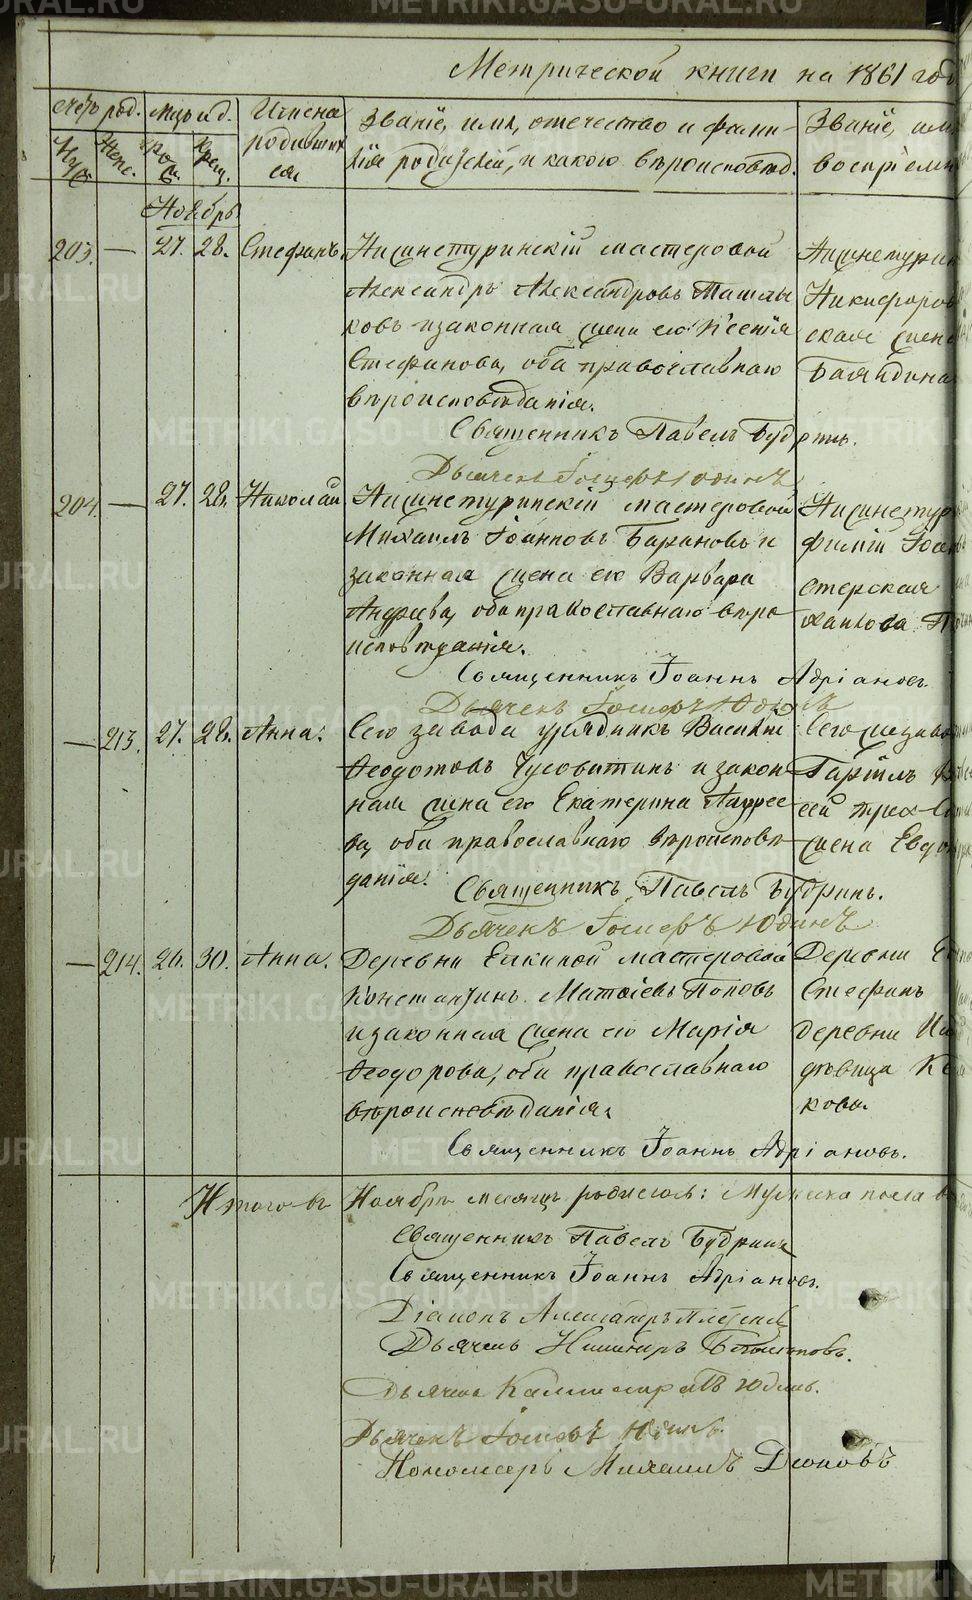 Метрической книги на 1861 год
счетъ род.
Муж.
Женс.
мцъ и д.
рож.
Крещ.
Имена родившихся
Званіе, имя, отечество и фамилія родителей, и какого вѣроисповѣд.
Званіе, имя
воспріем
Ноябрь
203. — 27. 28. Стефанъ.
Нижнетуринскій мастеровой
Александръ Александровъ
ковъ и законная жена его Ксенія
Стефанова, оба православнаго
вѣроисповѣданія.
Священникъ Павелъ Будринъ.
Дьячекъ Іосифъ Юдинъ
Нижнетурин
Никифоров
ская жена
204. — 27. 28. Николай
Нижнетуринскій мастеровой
Михаилъ Іоанновъ Барановъ и
законная жена его Варвара
Андреева, оба православнаго вѣро
исповѣданія.
Священникъ Іоаннъ Адріановъ.
Дьячекъ Іосифъ Юдинъ
Нижнетур
стерская
— 213. 27. 28. Анна.
Сего завода урядникъ Василій
Ѳеодотовъ Чусовитинъ и закон
ная жена его Екатерина Андрее
ва, оба православнаго вѣроисповѣ
данія.
Священникъ Павелъ Будринъ.
Дьячекъ Іосифъ Юдинъ
жена Евдок
— 214. 26. 30. Анна.
Деревни Елкиной мастеровой
Константинъ Матѳіевъ Поповъ
и законная жена его Марія
Ѳеодорова, оба православнаго
вѣроисповѣданія.
Священникъ Іоаннъ Адріановъ.
Деревни
Стефанъ
деревни
дѣвица
кова.
Итого въ Ноябрѣ месяцѣ родилось: Мужеска пола
Священникъ Павелъ Будринъ
Священникъ Іоаннъ Адріановъ.
Діаконъ Александръ
Дьячекъ
Дьячекъ Юдинъ.
Дьячекъ Іосифъ Юдинъ.
Пономарь Михаилъ
METRIKI.GASO-URAL.RU